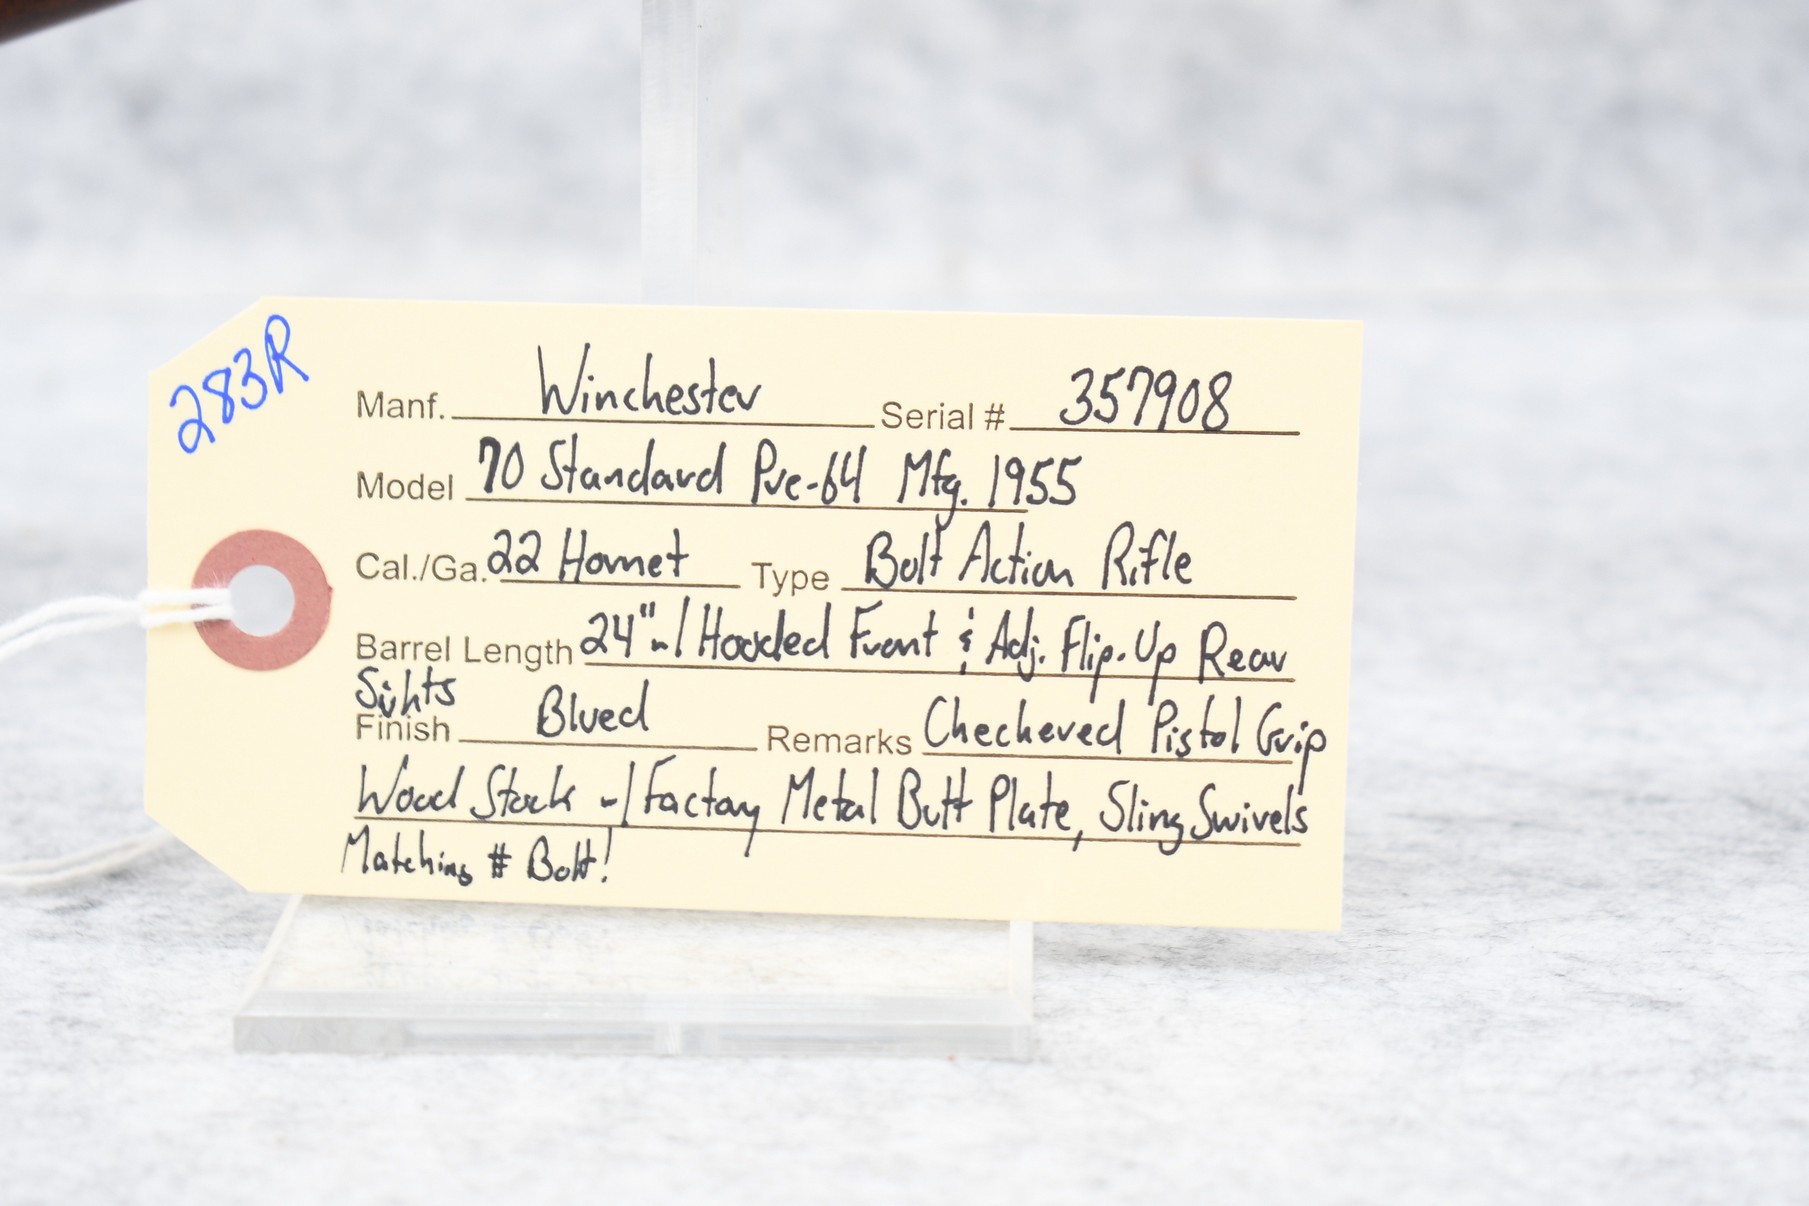 283R
Manf. Winchester Serial # 357908
Model 70 Standard Pre-64 Mfg. 1955
Cal./Ga. 22 Hornet Type Bolt Action Rifle
Barrel Length 24" w/ Hooded Front & Adj. Flip-Up Rear
Sights
Finish Blued Remarks Checkered Pistol Grip
Wood Stock w/ Factory Metal Butt Plate, Sling Swivels
Matching # Bolt!